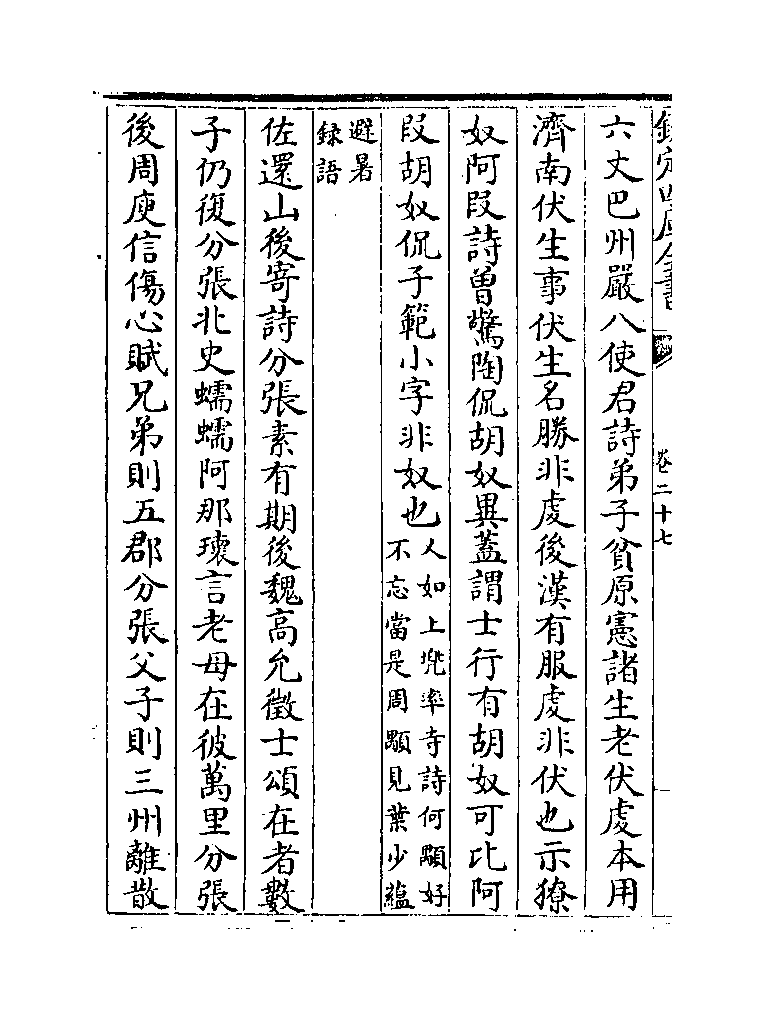 欽定四庫全書
卷二十七
六丈巴州嚴八使君詩弟子貧原憲諸生老伏䖍本用
濟南伏生事伏生名勝非䖍後漢有服䖍非伏也示獠
奴阿段詩曽驚陶侃胡奴異蓋謂士行有胡奴可比阿
段胡奴侃子範小字非奴也人如上兜率寺詩何顒好
不忘當是周顒見葉少蘊
避暑
録語
佐還山後寄詩分張素有期後魏高允徵士頌在者數
子仍復分張北史蠕蠕阿那瓌言老母在彼萬里分張
後周庾信傷心賦兄弟則五郡分張父子則三州離散